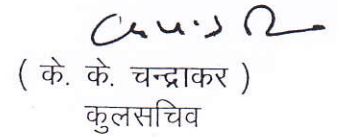 ( के. के. चन्द्राकर )
कुलसचिव